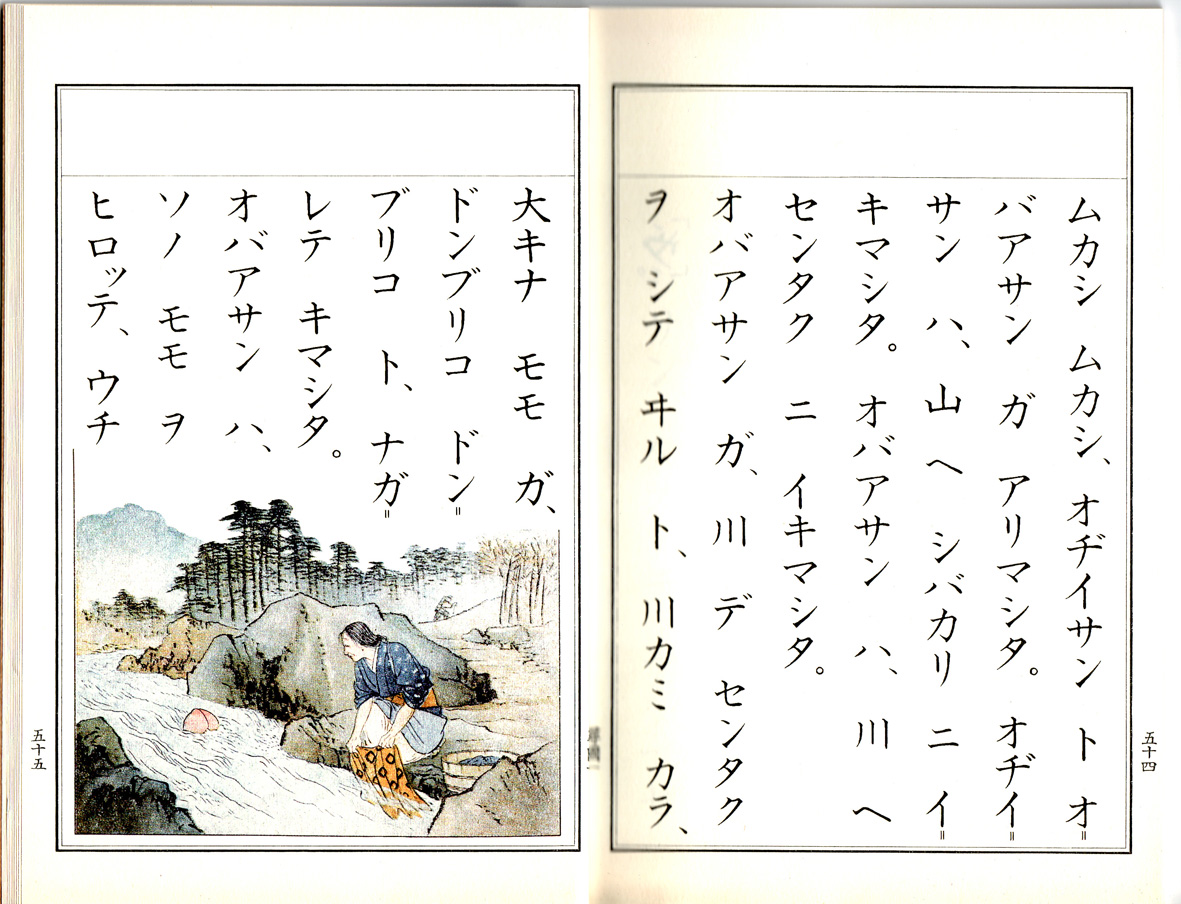 ムカシ ムカシ、オヂイサン ト オ=
バアサン ガ アリマシタ。オヂイ=
サン ハ、山 ヘ シバカリ ニ イ=
キマシタ。オバアサン ハ、川 ヘ
センタク ニ イキマシタ。
オバアサン ガ、川 デ センタク
ヲ シテ ヰル ト、川カミ カラ、
五十四
大キナ モモ ガ、
ドンブリコ ドン=
ブリコ ト、ナガ=
レテ キマシタ。
オバアサン ハ、
ソノ モモ ヲ
ヒロッテ、ウチ
五十五